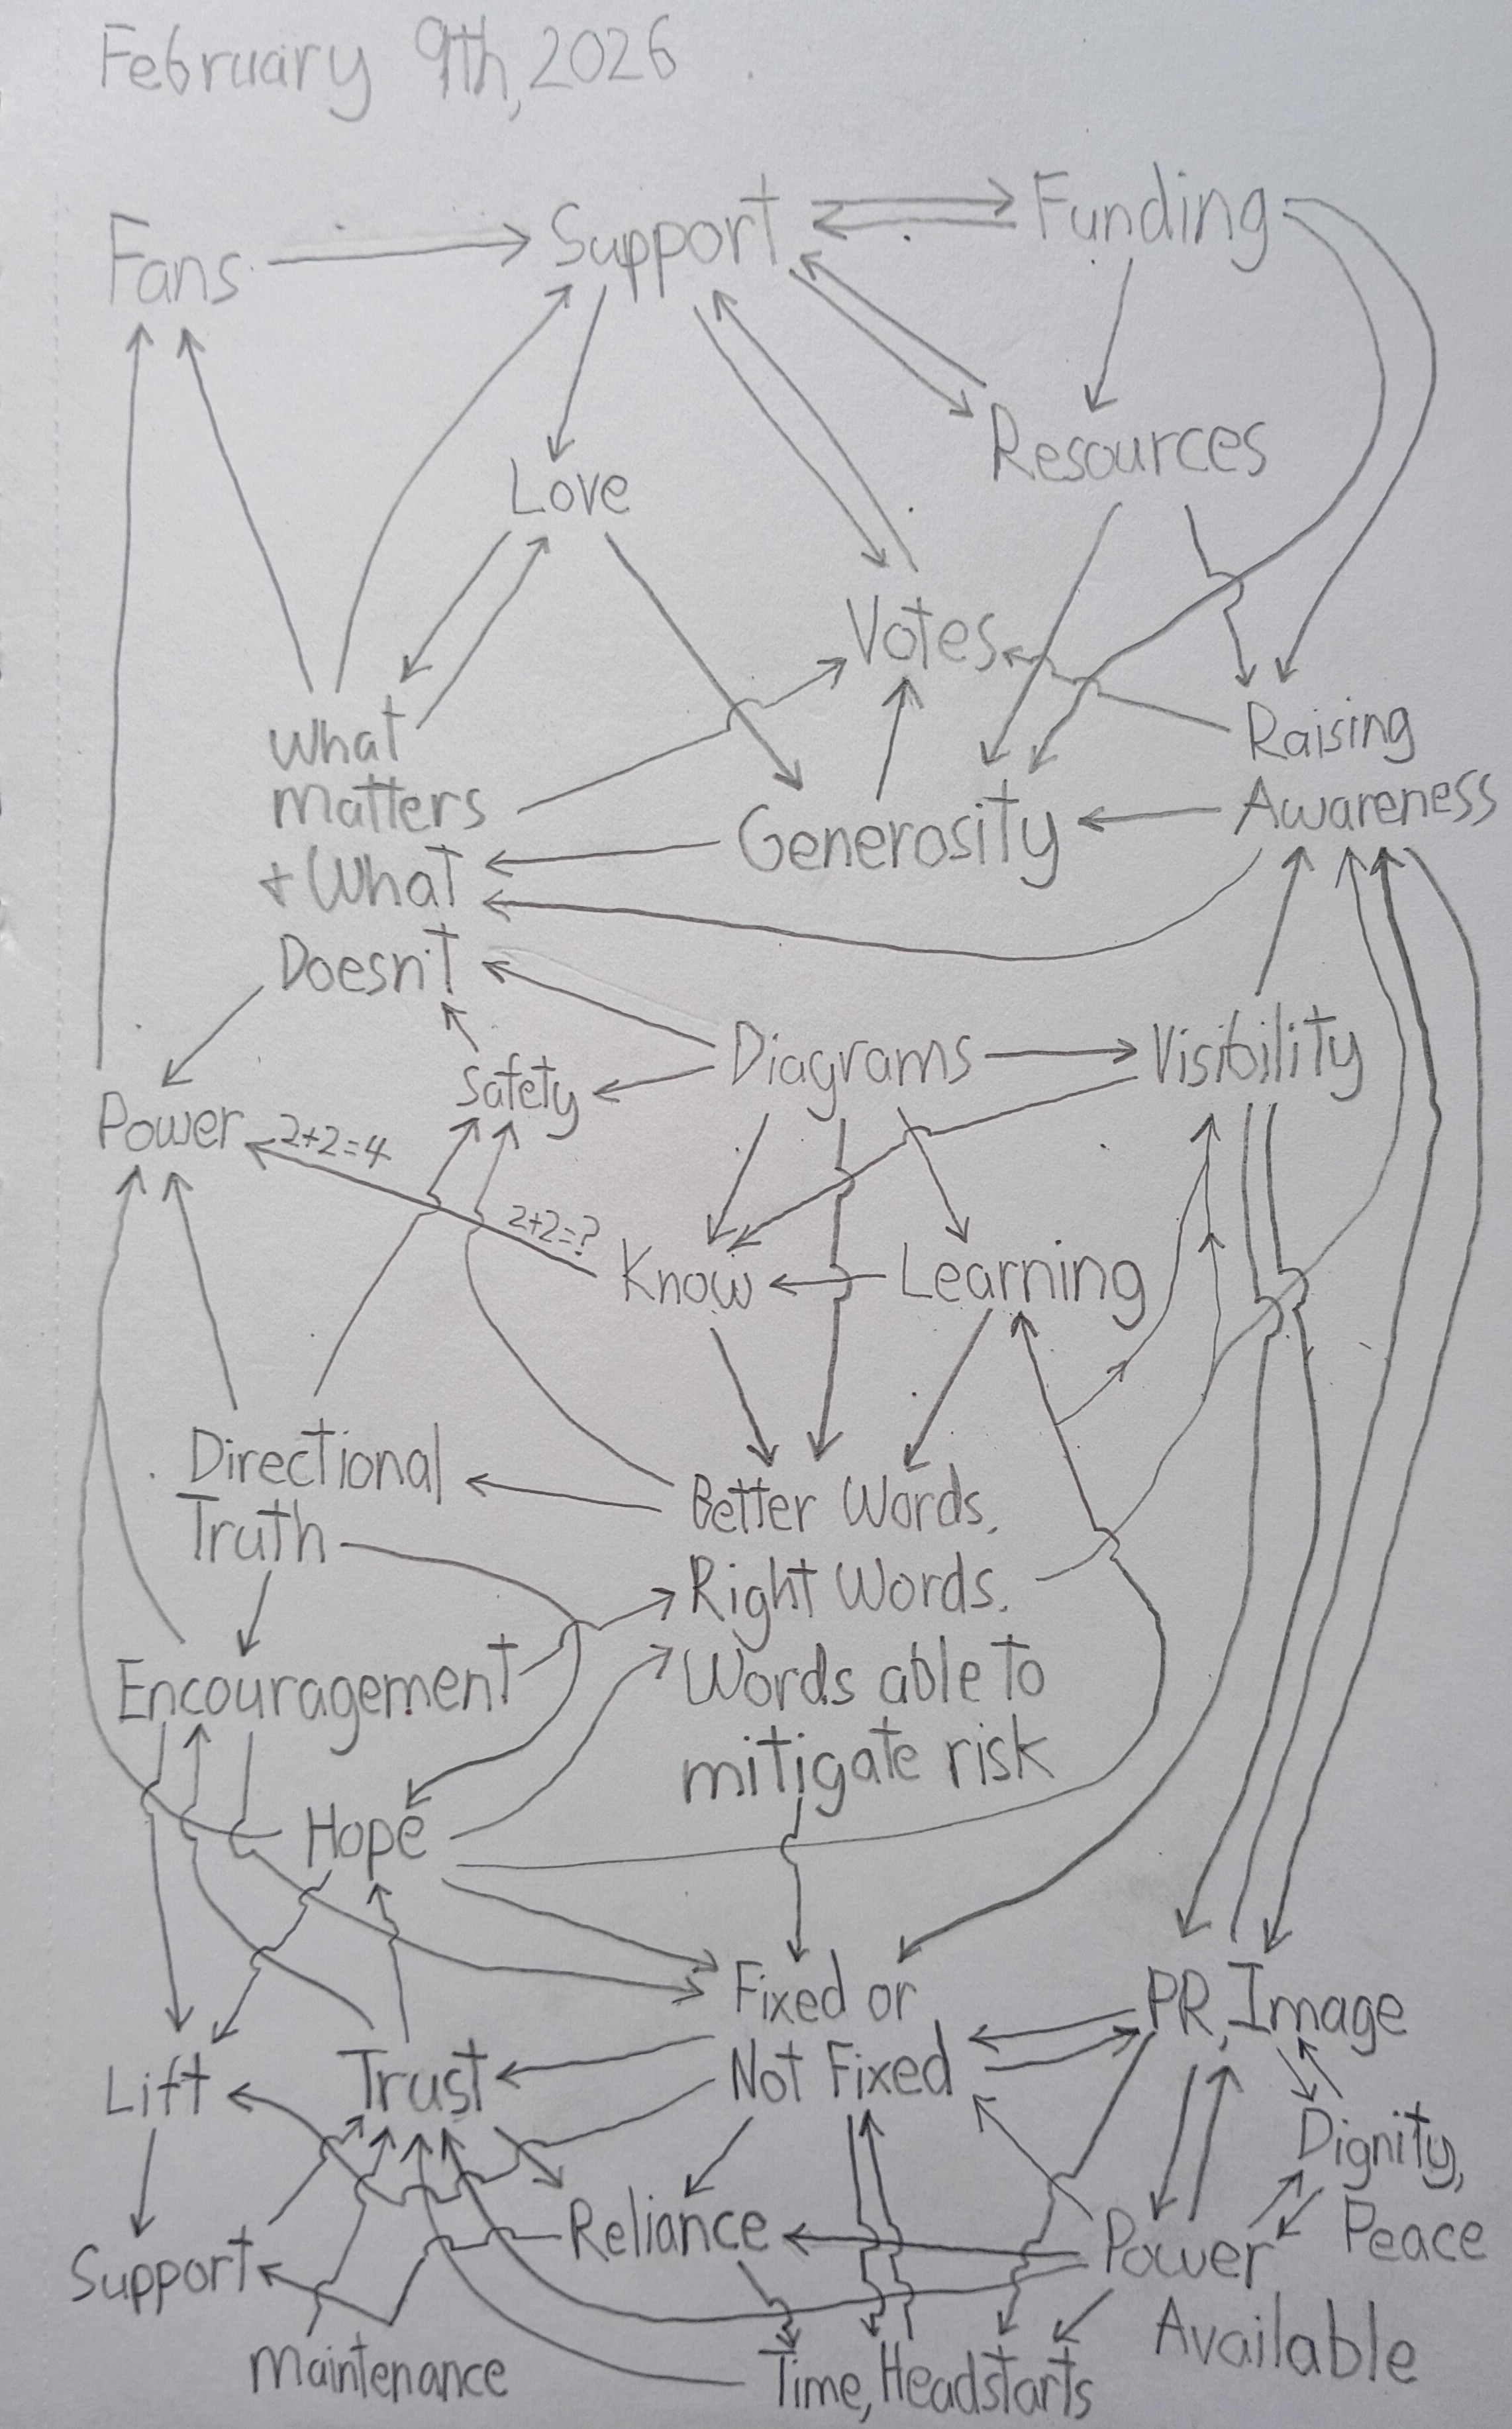 February 9th, 2026
Fans
Support
Funding
Resources
Love
Votes
What
Matters
+ What
Doesn't
Raising
Awareness
Generosity
Diagrams
Visibility
Safety
Power
2+2=4
2+2=?
Know
Learning
Directional
Truth
Better Words.
Right Words.
Words able to
mitigate risk
Encouragement
Hope
Fixed or
Not Fixed
PR, Image
Lift
Trust
Dignity,
Peace
Reliance
Power
Available
Support
Maintenance
Time, Headstarts